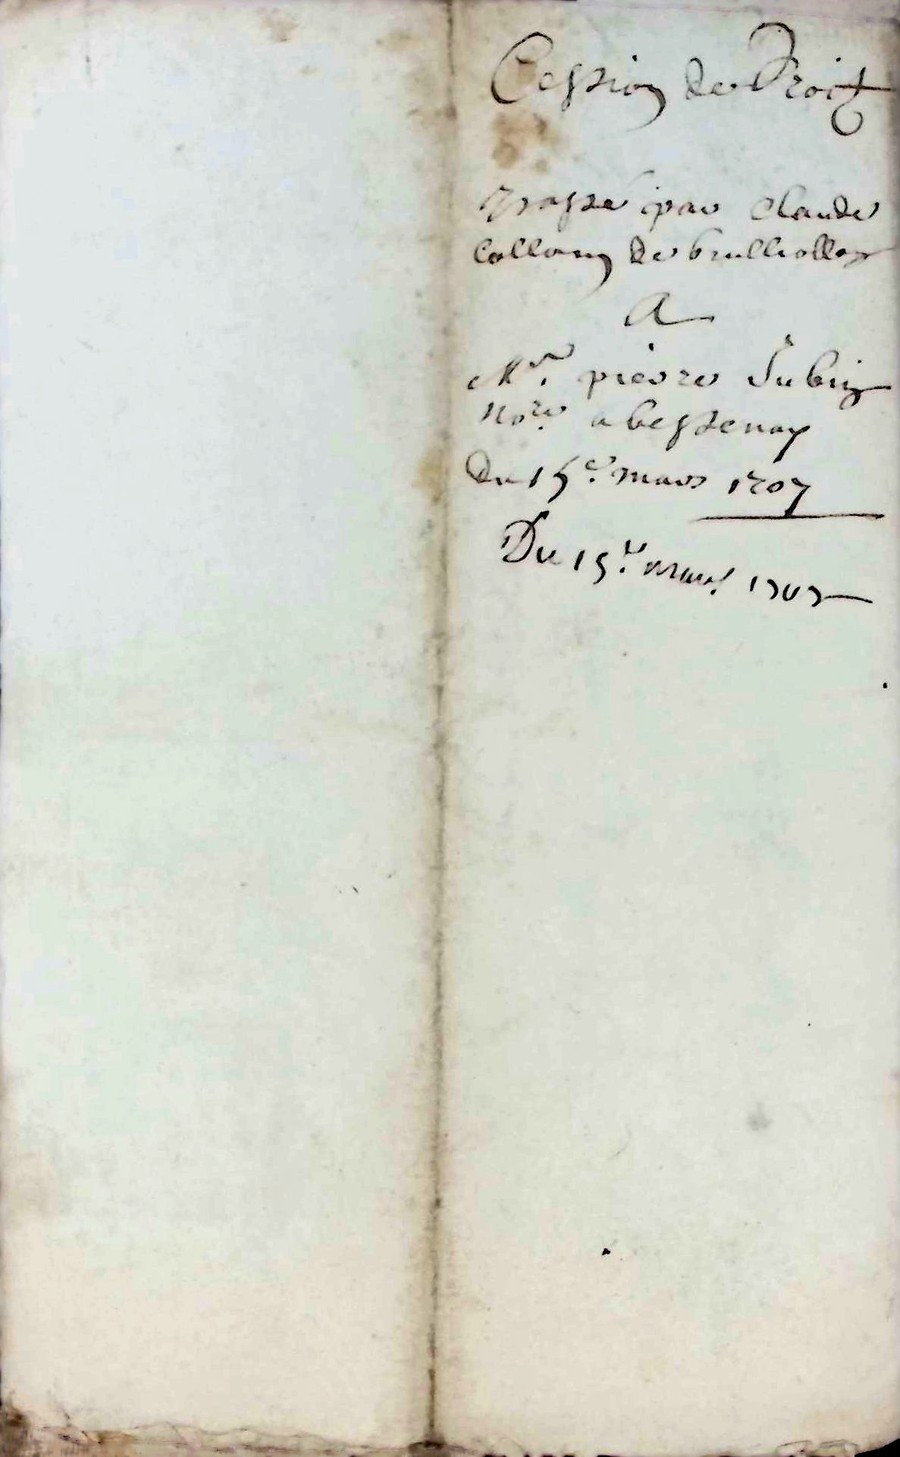 Cession de Droit
passé par Claude
Collomg de brulliolles
A
Mre. pierre Subrin
Nore. a bessenay
Du 15e. mars 1707
Du 15e. mars 1707